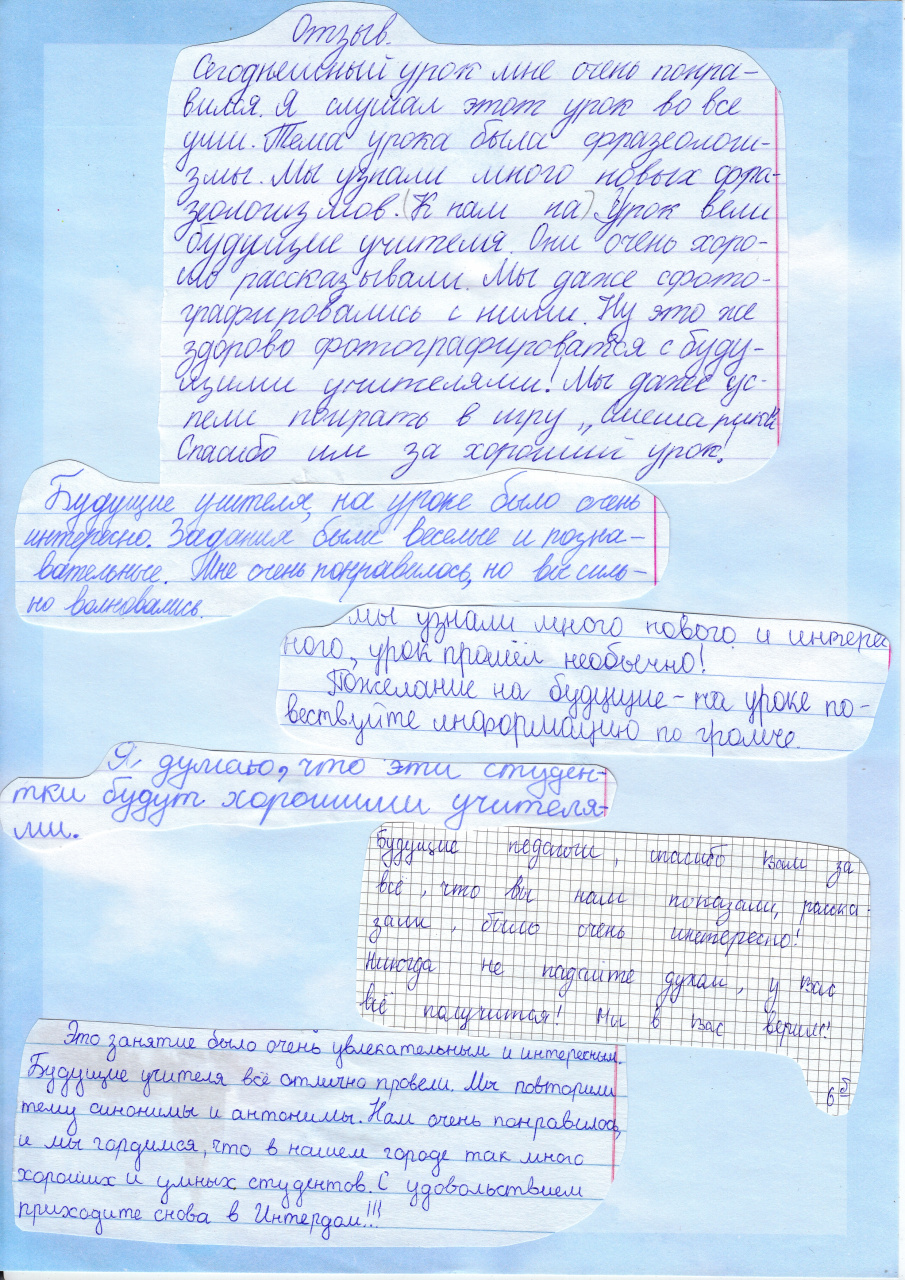 Отзыв.
Сегодняшний урок мне очень понра-
вился. Я слушал этот урок во все
уши. Тема урока была фразеологи-
змы. Мы узнали много новых фра-
зеологизмов. (К нам на) Урок вели
будущие учителя. Они очень хоро-
шо рассказывали. Мы даже сфото-
графировались с ними. Ну это же
здорово фотографироваться с буду-
щими учителями! Мы даже ус-
пели поиграть в игру „Смешарики
Спасибо им за хороший урок!
Будущие учителя, на уроке было очень
интересно. Задания были веселые и позна-
вательные. Мне очень понравилось, но вы силь-
но волновались.
Мы узнали много нового и интерес
ного, урок прошёл необычно!
Пожелание на будущие - на уроке по-
вествуйте информацию по громче.
Я, думаю, что эти студен-
тки будут хорошими учителя-
ми.
Будущие педагоги, спасибо Вам за
всё, что вы нам показали, расска-
зали, было очень интересно!
Никогда не падайте духом, у Вас
всё получится! Мы в Вас верим!
6 б
Это занятие было очень увлекательным и интересным.
Будущие учителя всё отлично провели. Мы повторили
тему синонимы и антонимы. Нам очень понравилось,
и мы гордимся, что в нашем городе так много
хороших и умных студентов. С удовольствием
приходите снова в Интердом!!!